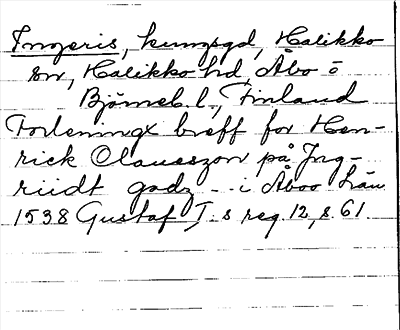 Ingeris, kungsgd, Halikko
sn, Halikko hd, Åbo o
Björneb. l., Finland
Forleningx breff for Hen-
rick Claueszon på Jng-
riidt godz - i Åboo Län
1538 Gustaf I:s reg. 12, s. 61.